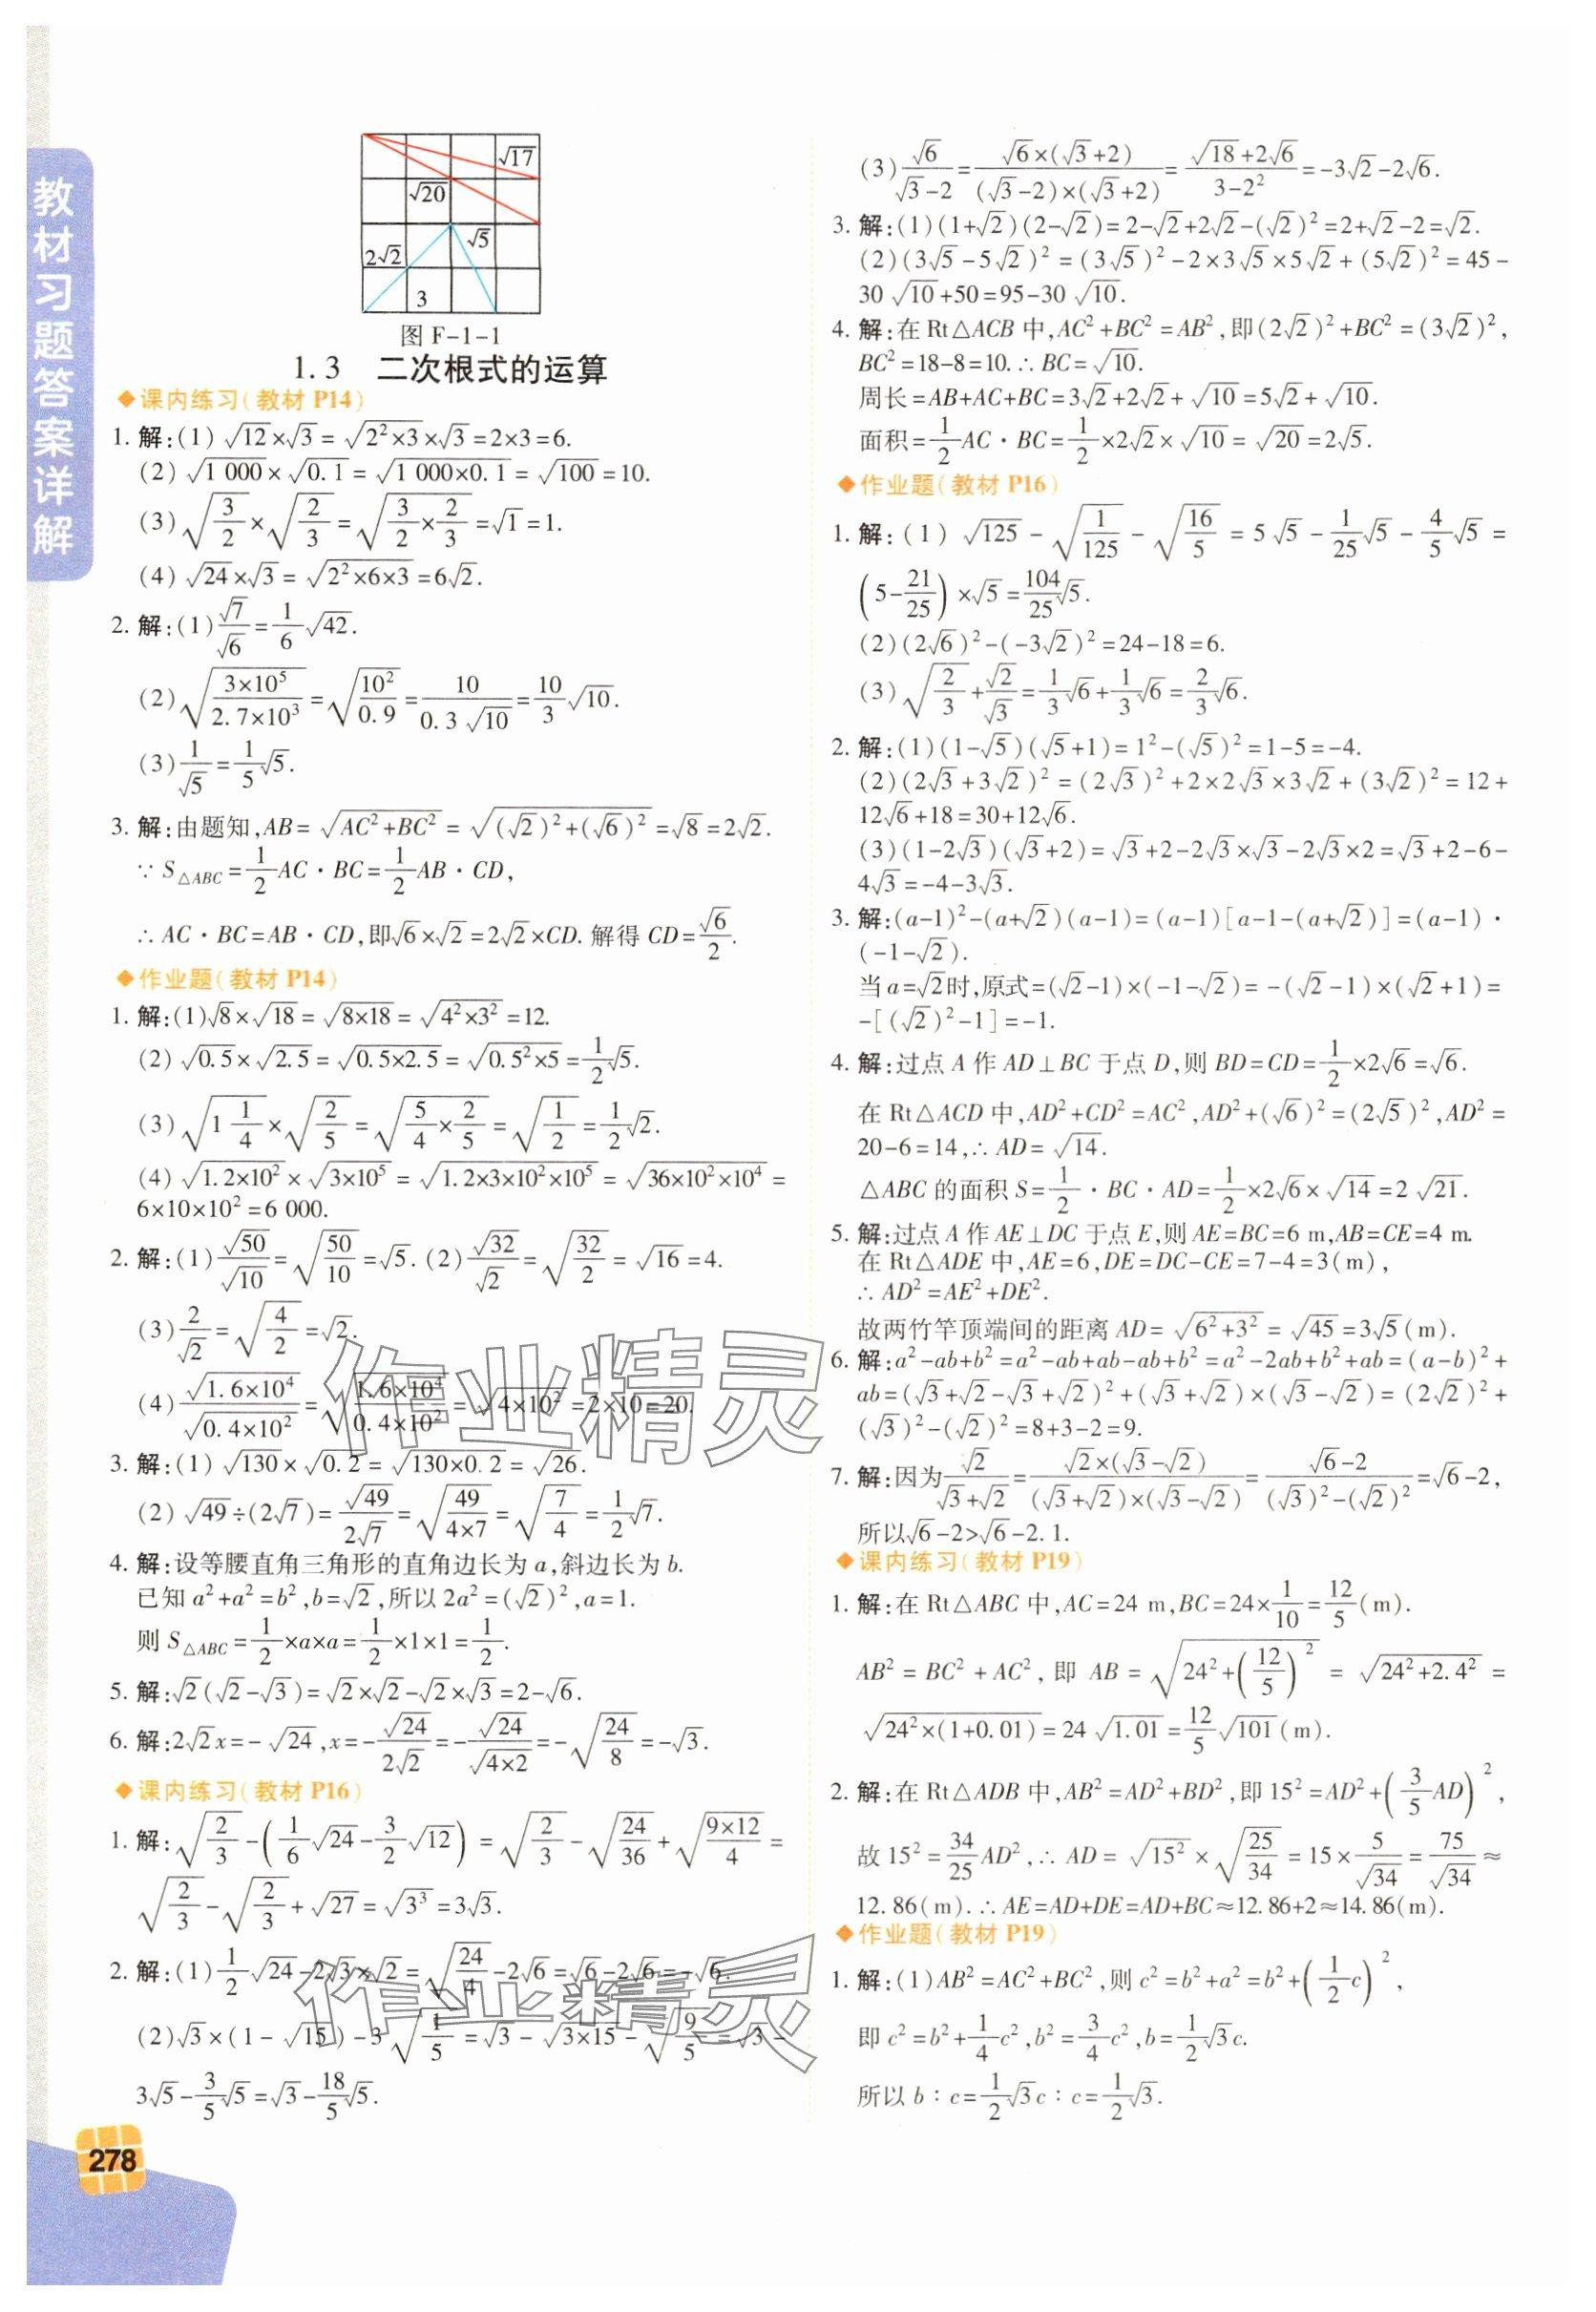 教材习题答案详解
√17
√20
√5
2√2
3
图 F-1-1
1.3 二次根式的运算
◆课内练习(教材 P14)
1. 解:(1) √12×√3 = √(2²×3)×√3 =2×3=6.
(2) √(1 000)×√(0.1) = √(1 000×0.1) = √100 =10.
(3) √(3/2)×√(2/3) = √(3/2×2/3) =√1 =1.
(4) √24×√3 = √(2²×6×3) =6√2.
2. 解:(1) √7/√6 = 1/6 √42.
(2) √((3×10⁵)/(2.7×10³)) = √(10²/0.9) = 10/(0.3√10) = 10/3 √10.
(3) 1/√5 = 1/5 √5.
3. 解:由题知,AB= √(AC²+BC²) = √((√2)²+(√6)²) =√8 =2√2.
∵ S△ABC = 1/2 AC·BC= 1/2 AB·CD,
∴ AC·BC=AB·CD,即√6×√2 =2√2×CD. 解得 CD= √6/2.
◆作业题(教材 P14)
1. 解:(1)√8×√18 = √(8×18) = √(4²×3²) =12.
(2) √0.5×√2.5 = √(0.5×2.5) = √(0.5²×5) = 1/2 √5.
(3) √(1 1/4)×√(2/5) = √(5/4×2/5) = √(1/2) = 1/2 √2.
(4) √(1.2×10²)×√(3×10⁵) = √(1.2×3×10²×10⁵) = √(36×10²×10⁴) =
6×10×10² =6 000.
2. 解:(1) √50/√10 = √(50/10) =√5. (2) √32/√2 = √(32/2) = √16 =4.
(3) 2/√2 = √(4/2) =√2.
(4) √(1.6×10⁴)/√(0.4×10²) = √((1.6×10⁴)/(0.4×10²)) = √(4×10²) =2×10=20.
3. 解:(1) √130×√0.2 = √(130×0.2) = √26.
(2) √49÷(2√7)= √49/(2√7) = √(49/(4×7)) = √(7/4) = 1/2 √7.
4. 解:设等腰直角三角形的直角边长为 a,斜边长为 b.
已知 a²+a²=b²,b=√2,所以 2a²=(√2)²,a=1.
则 S△ABC = 1/2×a×a= 1/2×1×1= 1/2.
5. 解:√2(√2-√3)=√2×√2-√2×√3=2-√6.
6. 解:2√2x=-√24,x=- √24/(2√2) =- √24/√(4×2) =-√(24/8) =-√3.
◆课内练习(教材 P16)
1. 解:√(2/3) -(1/6 √24- 3/2 √12) = √(2/3) - √(24/36) + √((9×12)/4) =
√(2/3) - √(2/3) + √27 = √(3³) =3√3.
2. 解:(1) 1/2 √24-2√3×√2 = √(24/4) -2√6=√6-2√6=-√6.
(2)√3×(1-√15)-3√(1/5) =√3-√(3×15)-√(9/5) =√3-
3√5- 3/5 √5=√3- 18/5 √5.
278
(3) √6/(√3-2) = (√6×(√3+2))/((√3-2)×(√3+2)) = (√18+2√6)/(3-2²) =-3√2-2√6.
3. 解:(1)(1+√2)(2-√2)=2-√2+2√2-(√2)²=2+√2-2=√2.
(2)(3√5-5√2)²=(3√5)²-2×3√5×5√2+(5√2)²=45-
30√10+50=95-30√10.
4. 解:在 Rt△ACB 中,AC²+BC²=AB²,即(2√2)²+BC²=(3√2)²,
BC²=18-8=10.∴ BC=√10.
周长=AB+AC+BC=3√2+2√2+√10=5√2+√10.
面积= 1/2 AC·BC= 1/2×2√2×√10=√20=2√5.
◆作业题(教材 P16)
1. 解:(1) √125 - √(1/125) - √(16/5) = 5√5 - 1/25 √5 - 4/5 √5 =
(5- 21/25)×√5= 104/25 √5.
(2)(2√6)²-(-3√2)²=24-18=6.
(3) √(2/3) + √2/√3 = 1/3 √6+ 1/3 √6= 2/3 √6.
2. 解:(1)(1-√5)(√5+1)=1²-(√5)²=1-5=-4.
(2)(2√3+3√2)²=(2√3)²+2×2√3×3√2+(3√2)²=12+
12√6+18=30+12√6.
(3)(1-2√3)(√3+2)=√3+2-2√3×√3-2√3×2=√3+2-6-
4√3=-4-3√3.
3. 解:(a-1)²-(a+√2)(a-1)=(a-1)[a-1-(a+√2)]=(a-1)·
(-1-√2).
当 a=√2时,原式=(√2-1)×(-1-√2)=-(√2-1)×(√2+1)=
-[(√2)²-1]=-1.
4. 解:过点 A 作 AD⊥BC 于点 D,则 BD=CD= 1/2×2√6=√6.
在 Rt△ACD 中,AD²+CD²=AC²,AD²+(√6)²=(2√5)²,AD²=
20-6=14,∴ AD=√14.
△ABC 的面积 S= 1/2·BC·AD= 1/2×2√6×√14=2√21.
5. 解:过点 A 作 AE⊥DC 于点 E,则 AE=BC=6 m,AB=CE=4 m.
在 Rt△ADE 中,AE=6,DE=DC-CE=7-4=3(m),
∴ AD²=AE²+DE².
故两竹竿顶端间的距离 AD= √(6²+3²) = √45=3√5(m).
6. 解:a²-ab+b²=a²-ab+ab-ab+b²=a²-2ab+b²+ab=(a-b)²+
ab=(√3+√2-√3+√2)²+(√3+√2)×(√3-√2)=(2√2)²+
(√3)²-(√2)²=8+3-2=9.
7. 解:因为 √2/(√3+√2) = (√2×(√3-√2))/((√3+√2)×(√3-√2)) = (√6-2)/((√3)²-(√2)²) =√6-2,
所以√6-2>√6-2.1.
◆课内练习(教材 P19)
1. 解:在 Rt△ABC 中,AC=24 m,BC=24× 1/10 = 12/5 (m).
AB²=BC²+AC²,即 AB= √(24²+(12/5)²) = √(24²+2.4²) =
√(24²×(1+0.01)) =24√1.01= 12/5 √101(m).
2. 解:在 Rt△ADB 中,AB²=AD²+BD²,即 15²=AD²+(3/5 AD)²,
故 15²= 34/25 AD²,∴ AD= √(15²)×√(25/34) =15× 5/√34 = 75/√34 ≈
12.86(m).∴ AE=AD+DE=AD+BC≈12.86+2≈14.86(m).
◆作业题(教材 P19)
1. 解:(1)AB²=AC²+BC²,则 c²=b²+a²=b²+(1/2 c)²,
即 c²=b²+ 1/4 c²,b²= 3/4 c²,b= 1/2 √3c.
所以 b∶c= 1/2 √3c∶c= 1/2 √3.
作业精灵
作业精灵